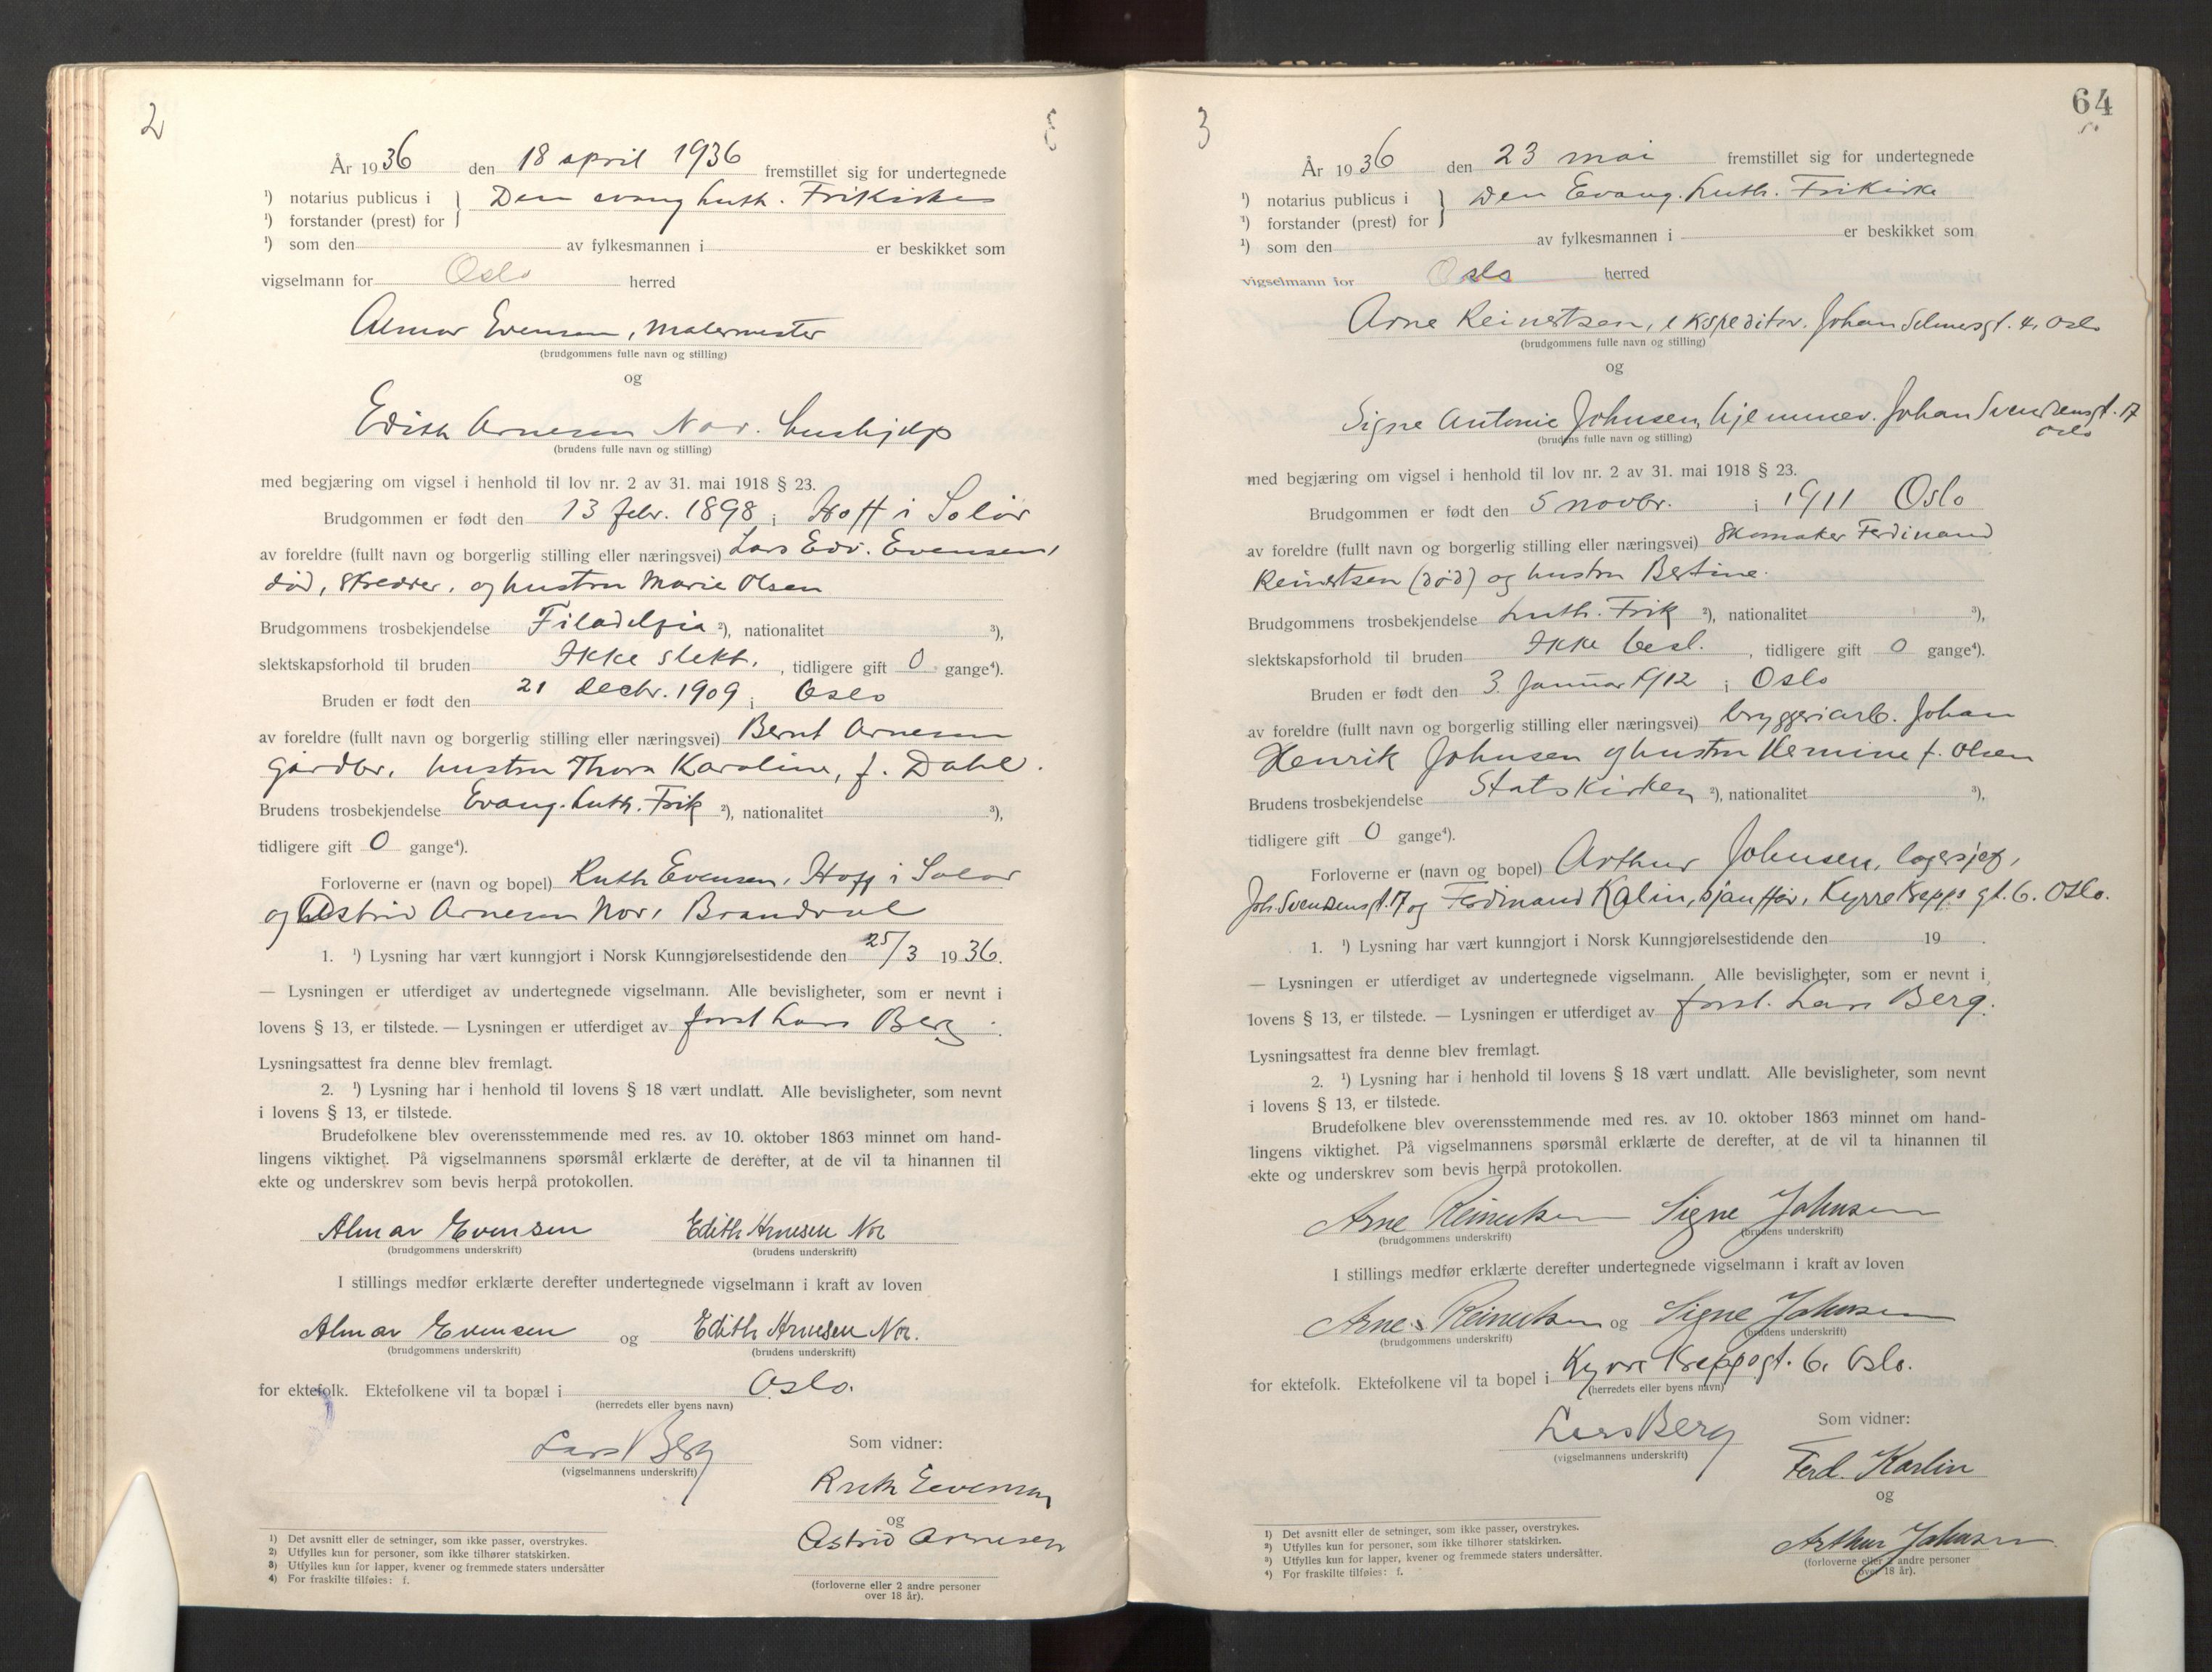 2
År 1936 den 18 april 1936 fremstillet sig for undertegnede
¹) notarius publicus i } Den evang luth. Frikirke
¹) forstander (prest) for
¹) som den av fylkesmannen i er beskikket som
vigselmann for Oslo herred
Almar Evensen, Malermester
(brudgommens fulle navn og stilling)
og
Edith Arnesen Nor. hushjelp
(brudens fulle navn og stilling)
med begjæring om vigsel i henhold til lov nr. 2 av 31. mai 1918 § 23.
Brudgommen er født den 13 febr. 1898 i Hoff i Solør
av foreldre (fullt navn og borgerlig stilling eller næringsvei) Lars Edv. Evensen,
død, skredder, og hustru Marie Olsen
Brudgommens trosbekjendelse Filadelfia ²), nationalitet ³),
slektskapsforhold til bruden Ikke slekt. , tidligere gift 0 gange⁴).
Bruden er født den 21 decbr. 1909 i Oslo
av foreldre (fullt navn og borgerlig stilling eller næringsvei) Bernt Arnesen
gårdbr. hustru Thora Karoline, f. Dahl.
Brudens trosbekjendelse Evang. luth. Frik ²), nationalitet ³),
tidligere gift 0 gange⁴).
Forloverne er (navn og bopel) Ruth Evensen, Hoff i Solør
og Astrid Arnesen Nor, Brandval
1. ¹) Lysning har vært kunngjort i Norsk Kunngjørelsestidende den 25/3 1936.
— Lysningen er utferdiget av undertegnede vigselmann. Alle bevisligheter, som er nevnt i
lovens § 13, er tilstede. — Lysningen er utferdiget av forst Lars Berg.
Lysningsattest fra denne blev fremlagt.
2. ¹) Lysning har i henhold til lovens § 18 vært undlatt. Alle bevisligheter, som nevnt
i lovens § 13, er tilstede.
Brudefolkene blev overensstemmende med res. av 10. oktober 1863 minnet om hand-
lingens viktighet. På vigselmannens spørsmål erklærte de derefter, at de vil ta hinannen til
ekte og underskrev som bevis herpå protokollen.
Almar Evensen Edith Arnesen Nor
(brudgommens underskrift) (brudens underskrift)
I stillings medfør erklærte derefter undertegnede vigselmann i kraft av loven
Almar Evensen og Edith Arnesen Nor.
(brudgommens underskrift) (brudens underskrift)
for ektefolk. Ektefolkene vil ta bopæl i Oslo.
(herredets eller byens navn)
Lars Berg
(vigselmannens underskrift)
Som vidner:
Ruth Evensen
og
Astrid Arnesen
(forloverne eller 2 andre personer
over 18 år).
1) Det avsnitt eller de setninger, som ikke passer, overstrykes.
2) Utfylles kun for personer, som ikke tilhører statskirken.
3) Utfylles kun for lapper, kvener og fremmede staters undersåtter
4) For fraskilte tilføies: f.
3
64
År 1936 den 23 mai fremstillet sig for undertegnede
¹) notarius publicus i } Den Evang. Luth. Frikirke
¹) forstander (prest) for
¹) som den av fylkesmannen i er beskikket som
vigselmann for Oslo herred
Arne Reinertsen, ekspeditør. Johan Selmersgt. 4, Oslo
(brudgommens fulle navn og stilling)
og
Signe Antonie Johnsen, hjemmev. Johan Svendsensgt. 17
Oslo
(brudens fulle navn og stilling)
med begjæring om vigsel i henhold til lov nr. 2 av 31. mai 1918 § 23.
Brudgommen er født den 5 novbr. i 1911 Oslo
av foreldre (fullt navn og borgerlig stilling eller næringsvei) Skomaker Ferdinand
Reinertsen (død) og hustru Bertine.
Brudgommens trosbekjendelse Luth. Frik ²), nationalitet ³),
slektskapsforhold til bruden Ikke besl. , tidligere gift 0 gange⁴).
Bruden er født den 3. Januar 1912 i Oslo
av foreldre (fullt navn og borgerlig stilling eller næringsvei) bryggeriarb. Johan
Henrik Johnsen og hustru Hermine f. Olsen
Brudens trosbekjendelse Statskirken ²), nationalitet ³),
tidligere gift 0 gange⁴).
Forloverne er (navn og bopel) Arthur Johnsen, lagersjef,
Joh. Svendsensgt. 17 og Ferdinand Kalin, sjauffør, Kyrre Grepps gt. 6. Oslo.
1. ¹) Lysning har vært kunngjort i Norsk Kunngjørelsestidende den 19 .
— Lysningen er utferdiget av undertegnede vigselmann. Alle bevisligheter, som er nevnt i
lovens § 13, er tilstede. — Lysningen er utferdiget av forst. Lars Berg.
Lysningsattest fra denne blev fremlagt.
2. ¹) Lysning har i henhold til lovens § 18 vært undlatt. Alle bevisligheter, som nevnt
i lovens § 13, er tilstede.
Brudefolkene blev overensstemmende med res. av 10. oktober 1863 minnet om hand-
lingens viktighet. På vigselmannens spørsmål erklærte de derefter, at de vil ta hinannen til
ekte og underskrev som bevis herpå protokollen.
Arne Reinertsen Signe Johnsen
(brudgommens underskrift) (brudens underskrift)
I stillings medfør erklærte derefter undertegnede vigselmann i kraft av loven
Arne Reinertsen og Signe Johnsen
(brudgommens underskrift) (brudens underskrift)
for ektefolk. Ektefolkene vil ta bopel i Kyrre Greppsgt. 6, Oslo.
(herredets eller byens navn)
Lars Berg
(vigselmannens underskrift)
Som vidner:
Ferd. Karlin
og
Arthur Johnsen
(forloverne eller 2 andre personer
over 18 år).
1) Det avsnitt eller de setninger, som ikke passer, overstrykes.
2) Utfylles kun for personer, som ikke tilhører statskirken.
3) Utfylles kun for lapper, kvener og fremmede staters undersåtter.
4) For fraskilte tilføies: f.